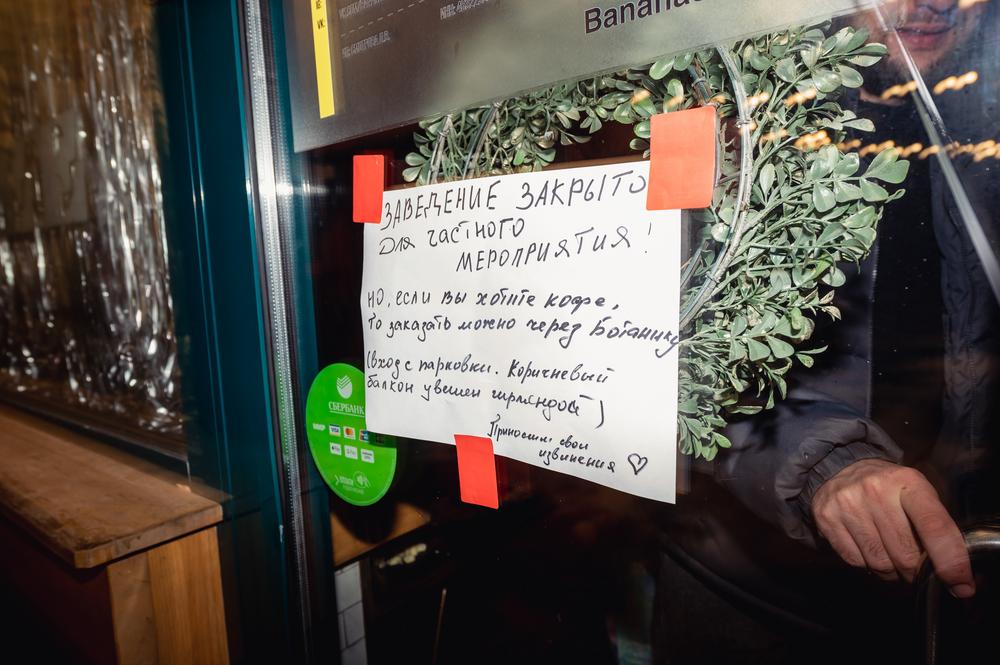 Banana
ЗАВЕДЕНИЕ ЗАКРЫТО
для частного
МЕРОПРИЯТИЯ!
НО, если вы хотите кофе,
то заказать можно через Ботанику
(вход с парковки. Коричневый
балкон увешен гирляндой)
Приносим свои
извинения ♡
СБЕРБАНК
МИР VISA